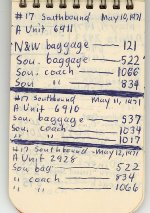 #17 Southbound May 10, 1971
A Unit 6911
N&W baggage — 121
Sou. baggage — 522
Sou. coach — 1066
Sou " — 834
#17 Southbound May 11, 1971
A Unit 6910
Sou, baggage — 537
Sou, coach — 1039
" " — 1017
#17 Southbound May 12, 1971
A Unit 2928
Sou bag — 522
" coach — 834
" " — 1066